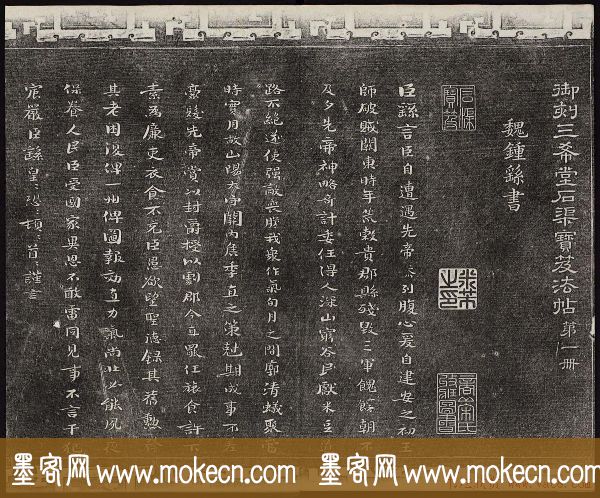 御刻三希堂石渠寶笈法帖 第一冊
魏鍾繇書
臣繇言臣自遭遇先帝忝列腹心爰自建安之初王
師破賊關東時年荒穀貴郡縣殘毀三軍餽饟朝不
及夕先帝神略奇計委任得人深山窮谷民獻米豆
路不絕遂使強敵喪膽我眾作氣旬月之間廓清蟻聚當
時實用故山陽太守關內侯季直之策剋期成事不差
豪髮先帝賞以封爵授以劇郡今直罷任旅食許下
素為廉吏衣食不充臣愚欲望聖德錄其舊勳矜
其老困復俾一州俾圖報效直力氣尚壯必能夙夜
保養人民臣受國家異恩不敢雷同見事不言干犯
宸嚴臣繇皇〻恐〻頓〻首〻謹言
墨客网 www.mokecn.com 墨客网 www.mokecn.com 墨客网 www.mokecn.com